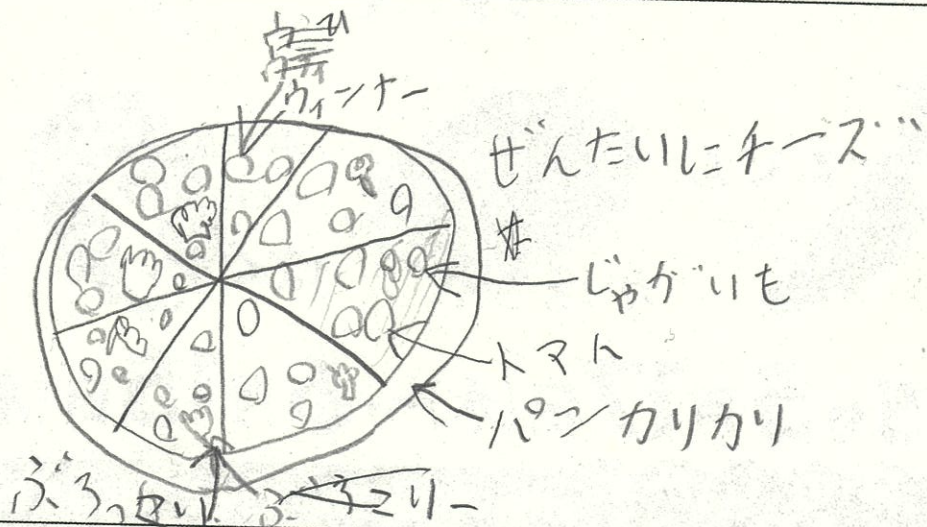 ウィンナー
ぜんたいにチーズ
じゃがいも
トマト
パンカリカリ
ぶろっこりー